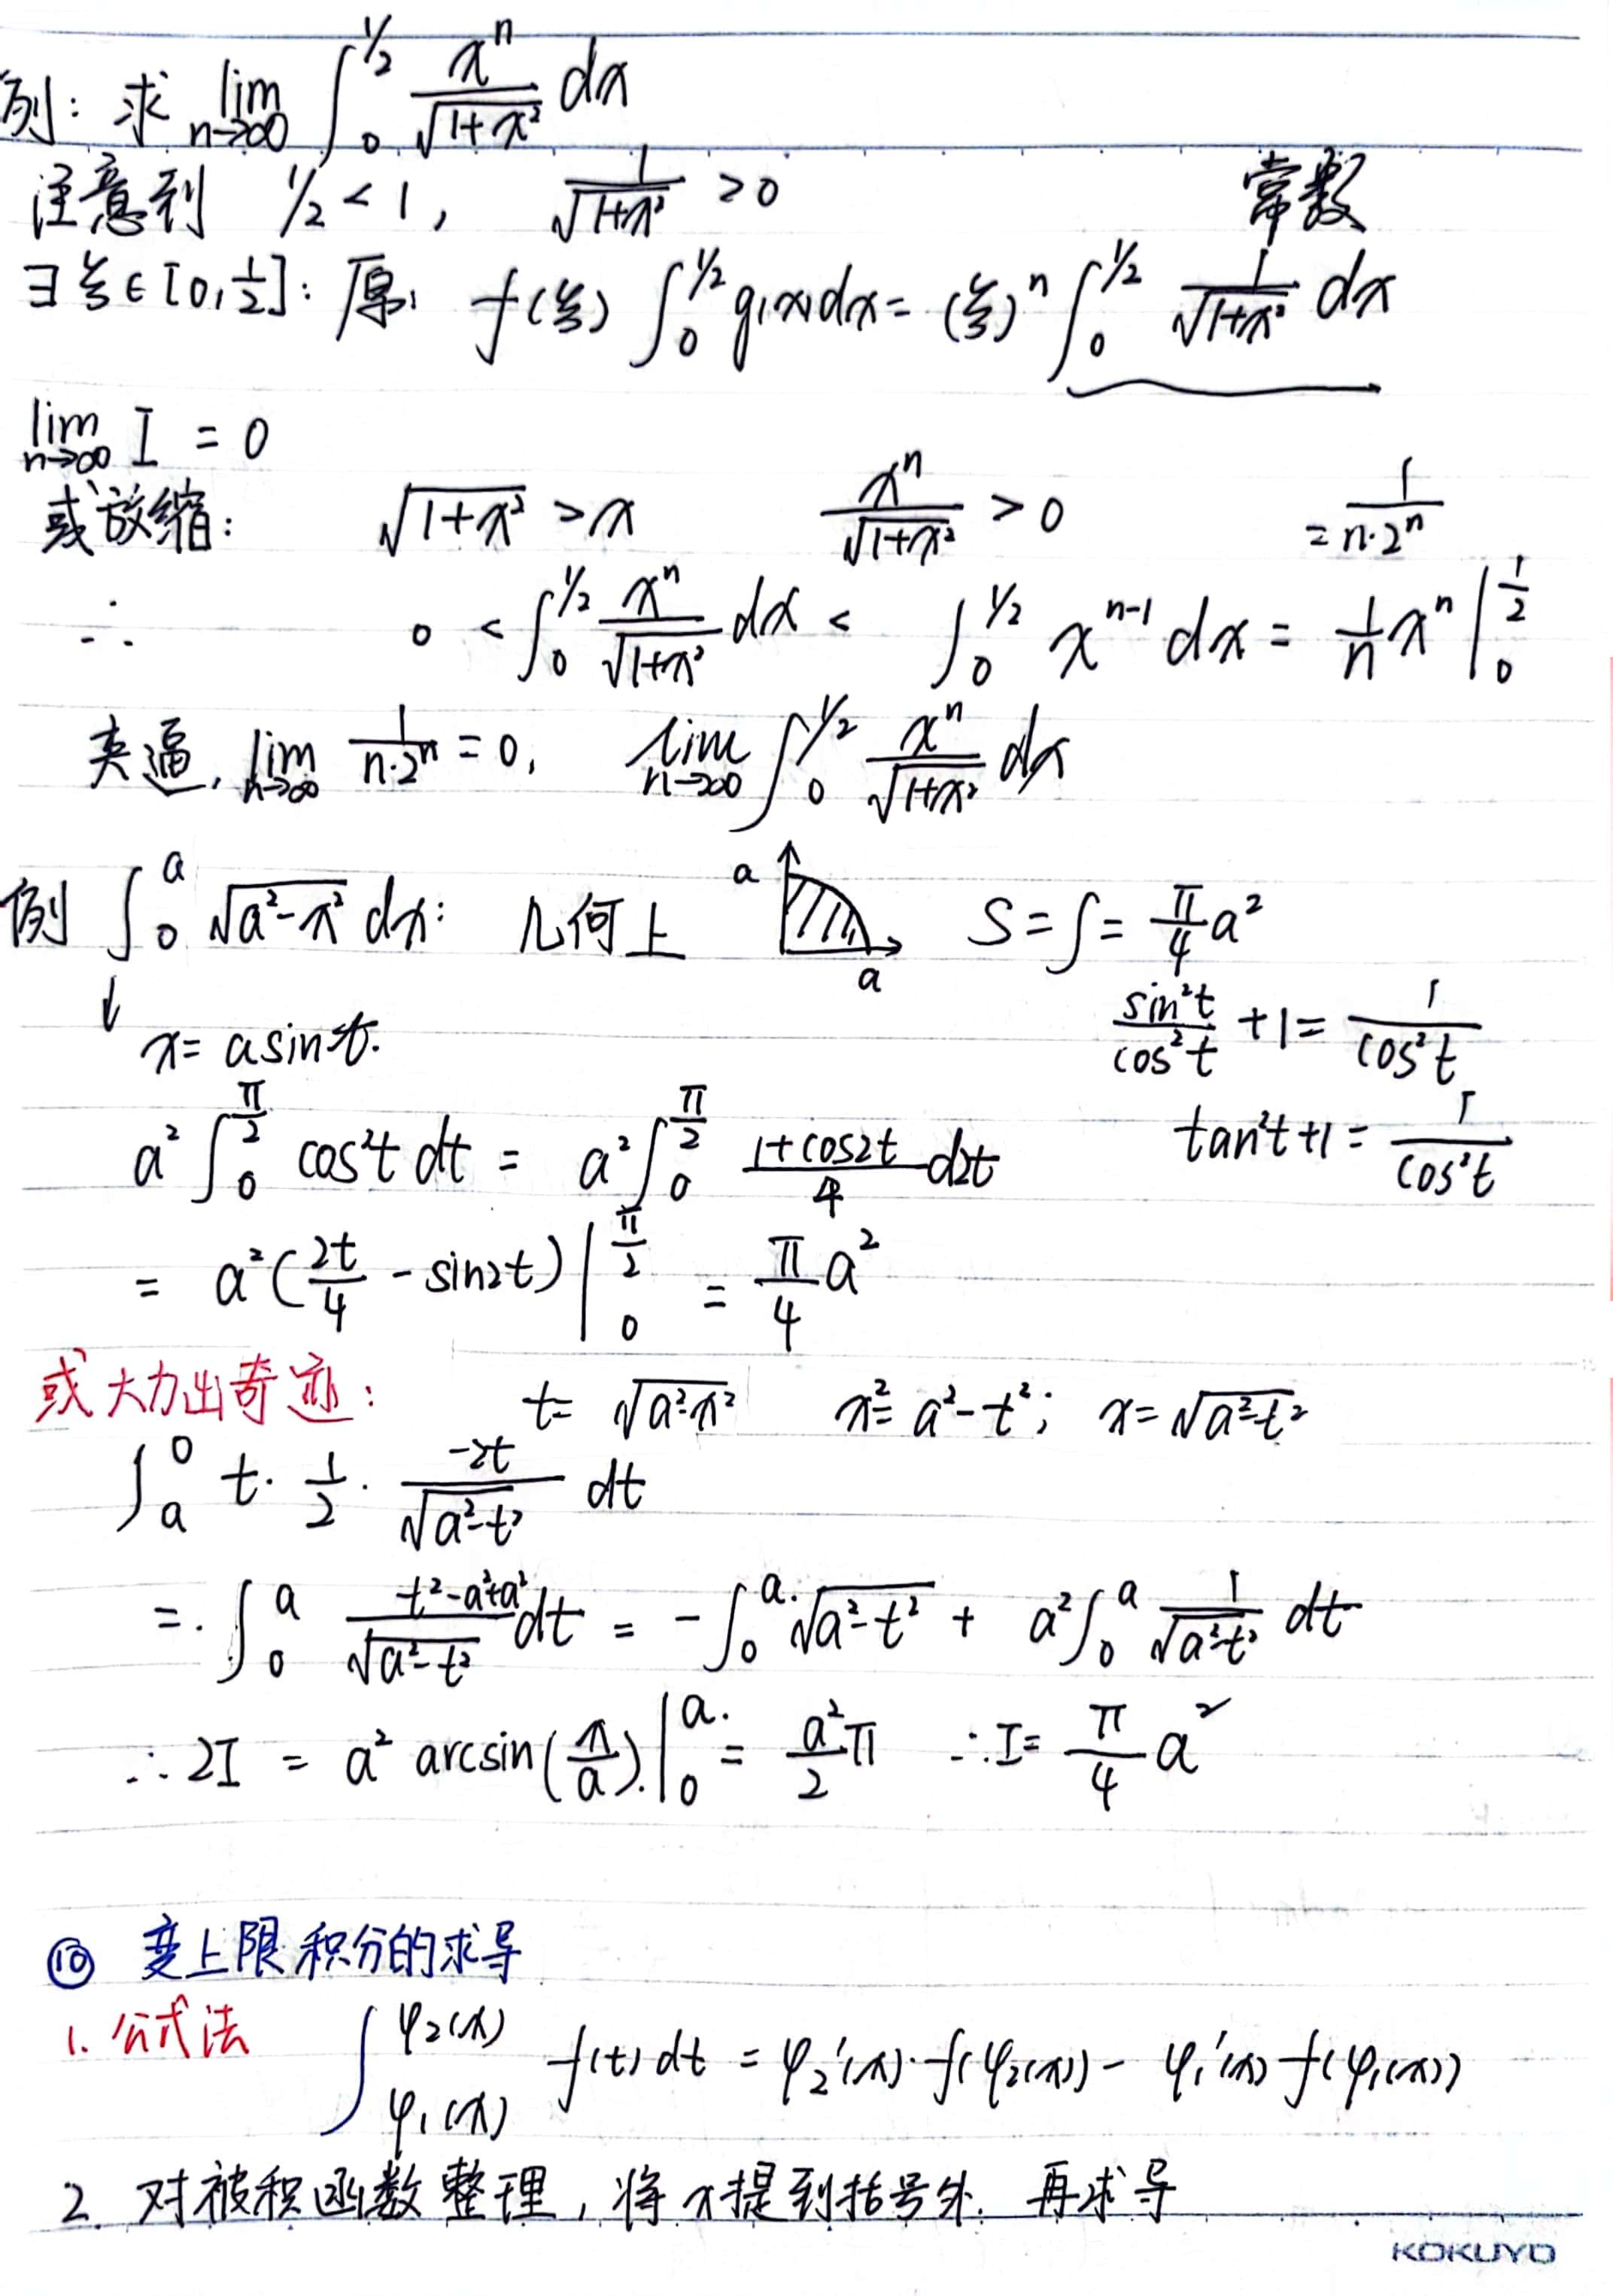 例: 求 lim n→∞ ∫₀^{1/2} xⁿ/√(1+x²) dx
注意到 1/2 < 1, 1/√(1+x²) > 0 常数
∃ξ∈[0,1/2]: 原: f(ξ) ∫₀^{1/2} g(x)dx = (ξ)ⁿ ∫₀^{1/2} 1/√(1+x²) dx
lim n→∞ I = 0
或放缩: √(1+x²) > x xⁿ/√(1+x²) > 0 = 1/(n·2ⁿ)
∴ 0 < ∫₀^{1/2} xⁿ/√(1+x²) dx < ∫₀^{1/2} x^{n-1} dx = 1/n xⁿ |₀^{1/2}
夹逼, lim n→∞ 1/(n·2ⁿ) = 0, lim n→∞ ∫₀^{1/2} xⁿ/√(1+x²) dx
例 ∫₀^a √(a²-x²) dx: 几何上 a a S = ∫ = π/4 a²
↓ x = a sint. sin²t/cos²t + 1 = 1/cos²t
a² ∫₀^{π/2} cos²t dt = a² ∫₀^{π/2} (1+cos2t)/4 d2t tan²t + 1 = 1/cos²t
= a² (2t/4 - sin2t) |₀^{π/2} = π/4 a²
或大力出奇迹: t = √(a²-x²) x² = a²-t²; x = √(a²-t²)
∫_a^0 t · 1/2 · -2t/√(a²-t²) dt
= ∫₀^a (t²-a²+a²)/√(a²-t²) dt = -∫₀^a √(a²-t²) + a² ∫₀^a 1/√(a²-t²) dt
∴ 2I = a² arcsin(x/a) |₀^a = a²/2 π ∴ I = π/4 a²
⑩ 变上限积分的求导
1. 公式法 ∫_{φ₁(x)}^{φ₂(x)} f(t) dt = φ₂'(x)·f(φ₂(x)) - φ₁'(x) f(φ₁(x))
2. 对被积函数整理, 将x提到括号外. 再求导
KOKUYO